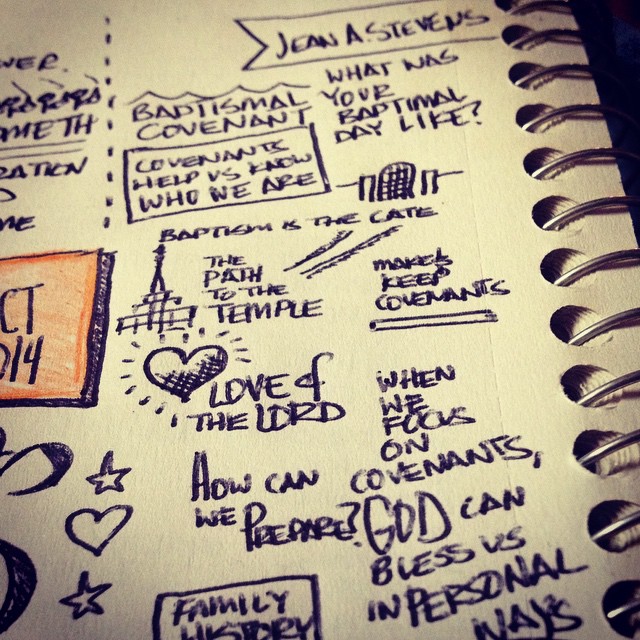 JEAN A. STEVENS
BAPTISMAL
COVENANT
COVENANTS
HELP US KNOW
WHO WE ARE
WHAT WAS
YOUR
BAPTIMAL
DAY LIKE?
BAPTISM IS THE GATE
THE
PATH
TO THE
TEMPLE
MAKE &
KEEP
COVENANTS
LOVE of
THE LORD
HOW CAN
WE PREPARE?
WHEN
WE
FOCUS
ON
COVENANTS,
GOD CAN
BLESS US
IN PERSONAL
WAYS
FAMILY
HISTORY
CT
014